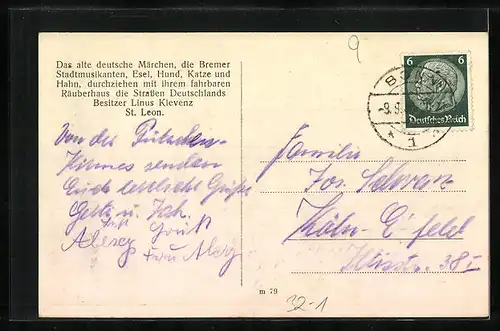 Das alte deutsche Märchen, die Bremer
Stadtmusikanten, Esel, Hund, Katze und
Hahn, durchziehen mit ihrem fahrbaren
Räuberhaus die Straßen Deutschlands
Besitzer Linus Klevenz
St. Leon.
Von der Pützchen-
Kirmes senden
Euch herzliche Grüße
9
6 6
Deutsches Reich
1
Familie
Jos. Schwarz
Köln-E'feld
m 79
32-1